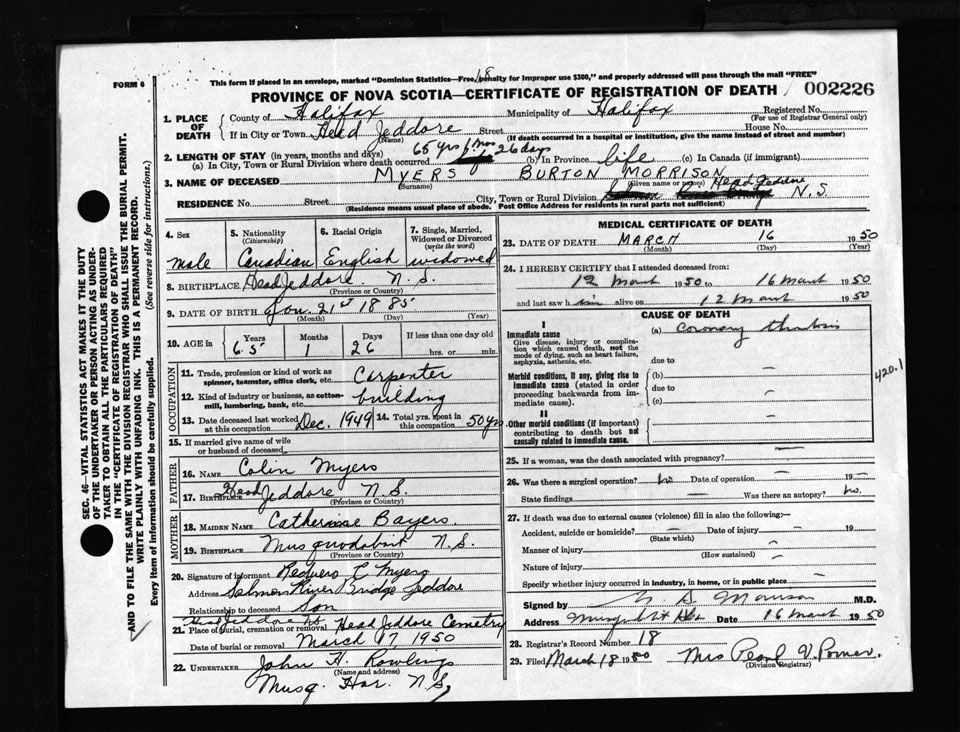 This form if placed in an envelope, marked "Dominion Statistics—Free, penalty for improper use $300," and properly addressed will pass through the mail "FREE"
FORM 6
18
PROVINCE OF NOVA SCOTIA—CERTIFICATE OF REGISTRATION OF DEATH 002226
SEC. 46—VITAL STATISTICS ACT MAKES IT THE DUTY
OF THE UNDERTAKER OR PERSON ACTING AS UNDER-
TAKER TO OBTAIN ALL THE PARTICULARS REQUIRED
IN THE "CERTIFICATE OF REGISTRATION OF DEATH"
AND TO FILE THE SAME WITH THE DIVISION REGISTRAR WHO SHALL ISSUE THE BURIAL PERMIT.
WRITE PLAINLY WITH UNFADING INK. THIS IS A PERMANENT RECORD.
Every item of information should be carefully supplied. (See reverse side for instructions.)
1. PLACE OF DEATH County of Halifax Municipality of Halifax Registered No.
(For use of Registrar General only)
If in City or Town Head Jeddore Street House No.
(Name) (If death occurred in a hospital or institution, give the name instead of street and number)
2. LENGTH OF STAY (in years, months and days) 65 yrs 1 mos 26 days
(a) In City, Town or Rural Division where death occurred (b) In Province life (c) In Canada (if immigrant)
3. NAME OF DECEASED MYERS BURTON MORRISON
(Surname) (Given name or names)
Head Jeddore
RESIDENCE No. Street City, Town or Rural Division N.S.
(Residence means usual place of abode. Post Office Address for residents in rural parts not sufficient)
4. Sex 5. Nationality (Citizenship) 6. Racial Origin 7. Single, Married, Widowed or Divorced (write the word)
male Canadian English widowed
8. BIRTHPLACE Head Jeddore N.S.
(Province or Country)
9. DATE OF BIRTH Jan. 21st 1885
(Month) (Day) (Year)
10. AGE in Years Months Days If less than one day old
65 1 26 hrs. or min.
OCCUPATION
11. Trade, profession or kind of work as spinner, teamster, office clerk, etc. Carpenter
12. Kind of industry or business, as cotton-mill, lumbering, bank, etc. building
13. Date deceased last worked at this occupation Dec. 1949 14. Total yrs. spent in this occupation 50 yrs
15. If married give name of wife or husband of deceased
FATHER
16. NAME Colin Myers
17. BIRTHPLACE Head Jeddore N.S.
(Province or Country)
MOTHER
18. MAIDEN NAME Catherine Bayers
19. BIRTHPLACE Musquodoboit N.S.
(Province or Country)
20. Signature of informant L Myers
Address Salmon River Bridge Jeddore
Relationship to deceased Son
Head Jeddore N.S.
21. Place of burial, cremation or removal Head Jeddore Cemetry
Date of burial or removal March 17, 1950
22. UNDERTAKER John H. Rowlings
(Name and address)
Musq. Har. N.S.
MEDICAL CERTIFICATE OF DEATH
23. DATE OF DEATH MARCH 16 1950
(Month) (Day) (Year)
24. I HEREBY CERTIFY that I attended deceased from:
12 March 1950 to 16 March 1950
and last saw him alive on 12 March 1950
CAUSE OF DEATH
I
Immediate cause
Give disease, injury or complication which caused death, not the mode of dying, such as heart failure, asphyxia, asthenia, etc.
(a) Coronary thrombosis
due to
Morbid conditions, if any, giving rise to immediate cause (stated in order proceeding backwards from immediate cause).
(b) —
due to
(c) —
420.1
II
Other morbid conditions (if important) contributing to death but not causally related to immediate cause.
25. If a woman, was the death associated with pregnancy? —
26. Was there a surgical operation? no Date of operation — 19 —
State findings — Was there an autopsy? no.
27. If death was due to external causes (violence) fill in also the following:—
Accident, suicide or homicide? — Date of injury — 19
(State which)
Manner of injury —
(How sustained)
Nature of injury —
Specify whether injury occurred in industry, in home, or in public place —
Signed by Morrison M.D.
Address Date 16 March 1950
28. Registrar's Record Number 18
29. Filed March 18 1950 Mrs Pearl V.
(Division Registrar)